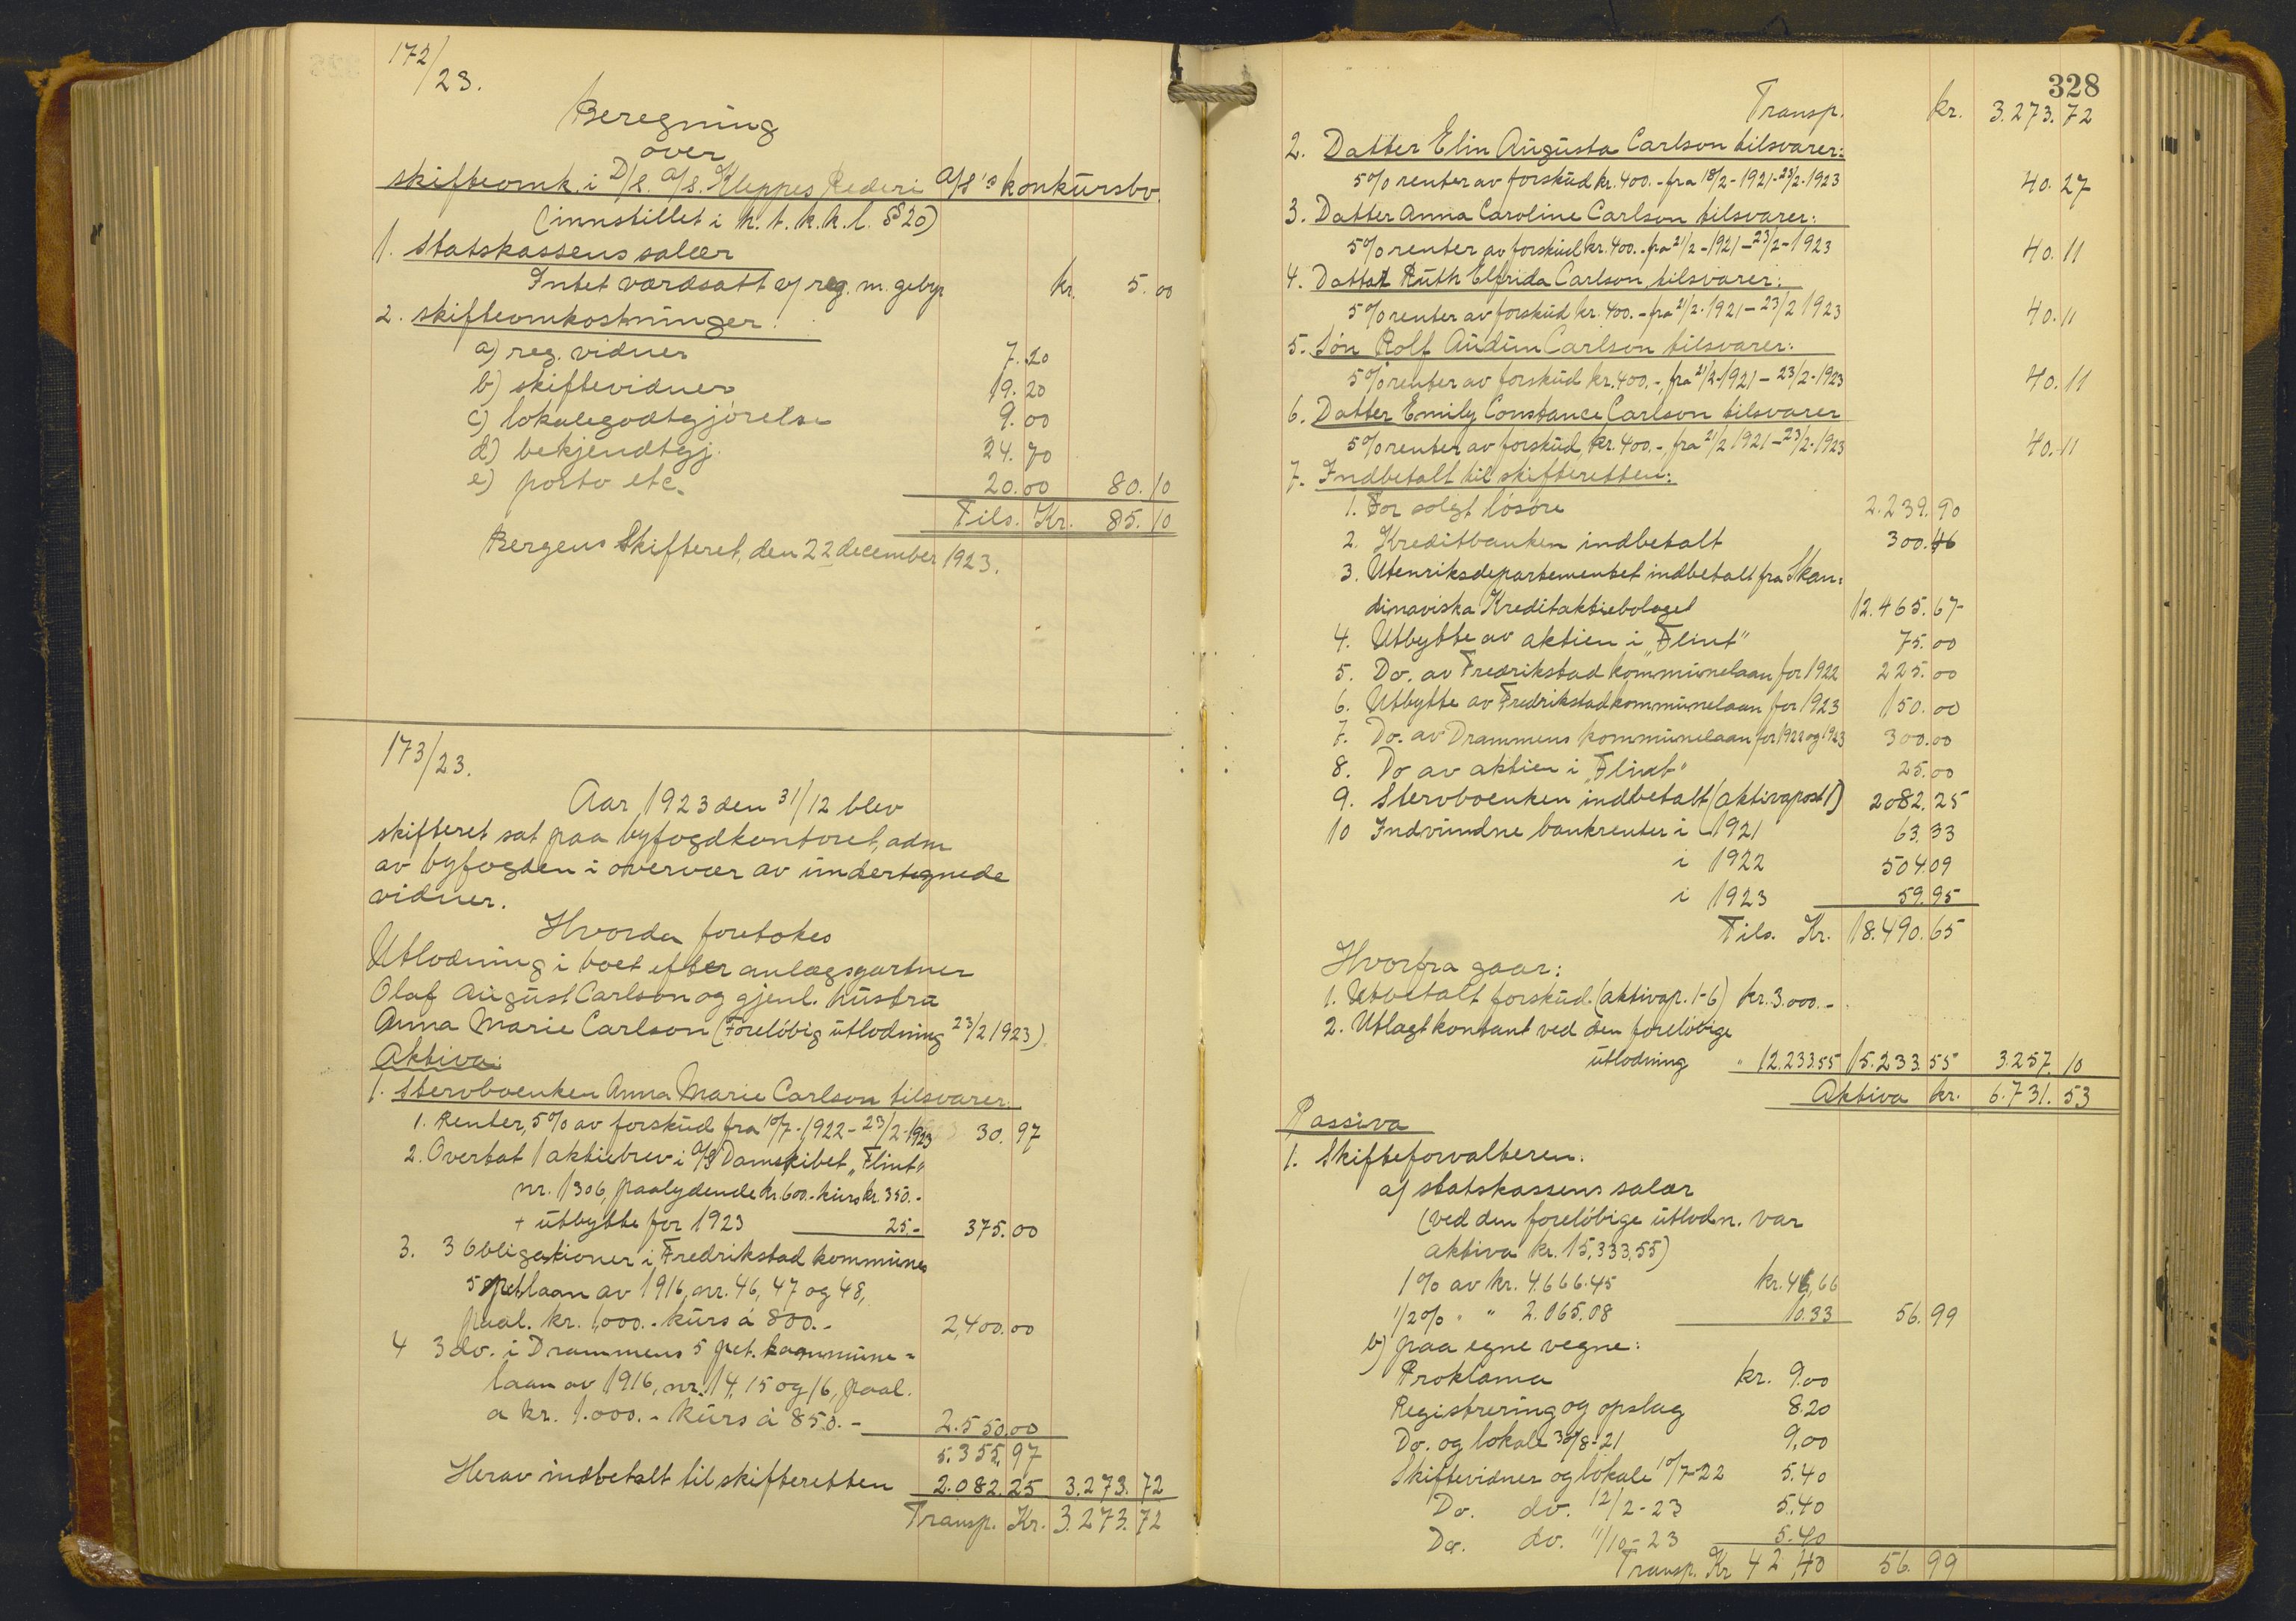 172/23.
Beregning
over
skifteomk. i D/S. A/S. Kleppes Rederi A/S's konkursbo.
(innstillet i h. t. k. k. l. § 20)
1. Statskassens salær
Intet værdsatt ej reg. m. gebyr kr. 5.00
2. skifteomkostninger.
a) reg. vidner 7.20
b) skiftevidner 19.20
c) lokalegodtgjørelse 9.00
d) bekjendtgj. 24.70
e) porto etc. 20.00 80.10
Tils. Kr. 85.10
Bergens Skifteret, den 22 december 1923.
173/23.
Aar 1923 den 31/12 blev
skifteret sat paa byfogdkontoret, adm
av byfogden i overvær av undertegnede
vidner.
Hvorda foretokes
Utlodning i boet efter anlægsgartner
Olaf August Carlson og gjenl. hustru
Anna Marie Carlson (Foreløbig utlodning 23/2 1923)
Aktiva:
1. Stervboenken Anna Marie Carlson tilsvarer:
1. Renter, 5% av forskud fra 10/7-1922 - 23/2-1923 30.97
2. Overtat 1 aktiebrev i A/S Damskibet „Flint"
nr. 1306, paalydende kr. 600.- kurs kr. 350.-
+ utbytte for 1923 25.- 375.00
3. 3 Obligationer i Fredrikstad kommunes
5 pct laan av 1916, nr. 46, 47 og 48,
paal. kr. 1,000.- kurs á 800.- 2,400.00
4 3 do. i Drammens 5 pct. kommune=
laan av 1916, nr. 14, 15 og 16, paal.
a kr. 1.000.- kurs á 850.- 2.550.00
5.355,97
Herav indbetalt til skifteretten 2.082.25 3.273.72
Transp. Kr. 3.273.72
328
Transp. kr. 3.273.72
2. Datter Elin Augusta Carlson tilsvarer:
5% renter av forskud kr. 400.- fra 18/2-1921-23/2-1923 40.27
3. Datter Anna Caroline Carlson tilsvarer:
5% renter av forskud kr. 400.- fra 21/2-1921-23/2-1923 40.11
4. Datter Ruth Elfrida Carlson, tilsvarer:
5% renter av forskud kr. 400.- fra 21/2-1921-23/2 1923 40.11
5. Søn Rolf Audun Carlson tilsvarer:
5% renter av forskud kr. 400.-, fra 21/2-1921-23/2-1923 40.11
6. Datter Emily Constance Carlson tilsvarer
5% renter av forskud, kr. 400.-, fra 21/2 1921-23/2-1923 40.11
7. Indbetalt til skifteretten:
1. For solgt løsøre 2.239.90
2. Kreditbanken indbetalt 300.46
3. Utenriksdepartementet indbetalt fra Skan=
dinaviska Kreditaktiebolaget 12.465.67
4. Utbytte av aktien i „Flint" 75.00
5. Do. av Fredrikstad kommunelaan for 1922 225.00
6. Utbytte av Fredrikstad kommunelaan for 1923 150.00
7. Do. av Drammens kommunelaan for 1922 og 1923 300.00
8. Do av aktien i „Flint" 25.00
9. Stervboenken indbetalt (aktivapost 1) 2082.25
10 Indvundne bankrenter i 1921 63.33
i 1922 504.09
i 1923 59.95
Tils. Kr. 18.490.65
Hvorfra gaar:
1. Utbetalt forskud. (aktivap. 1-6) kr. 3.000.-
2. Utlagt kontant ved den foreløbige
utlodning " 12.233.55 15.233.55 3.257.10
Aktiva kr. 6.731.53
Passiva
1. Skifteforvalteren.
a) statskassens salær
(ved den foreløbige utlodn. var
aktiva kr. 15.333,55)
1% av kr. 4.666.45 kr. 46,66
1/2% " " 2.065.08 10.33 56.99
b) paa egne vegne:
Proklama kr. 9.00
Registrering og opslag 8.20
Do. og lokale 30/8-21 9,00
Skiftevidner og lokale 10/7-22 5.40
Do. do. 12/2-23 5.40
Do. do. 11/10-23 5.40
Transp. Kr 42,40 56.99